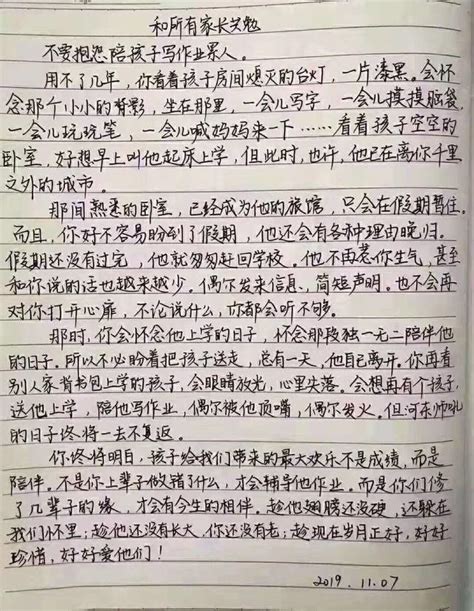 和所有家长共勉
不要抱怨陪孩子写作业累人。
用不了几年，你看着孩子房间熄灭的台灯，一片漆黑。会怀
念那个小小的背影，坐在那里，一会儿写字，一会儿摸摸脑袋
一会儿玩玩笔，一会儿喊妈妈来一下……看着孩子空空的
卧室，好想早上叫他起床上学，但此时，也许，他已在离你千里
之外的城市。
那间熟悉的卧室，已经成为他的旅馆，只会在假期暂住。
而且，你好不容易盼到了假期，他还会有各种理由晚归。
假期还没有过完，他就匆匆赶回学校。他不再惹你生气，甚至
和你说的话也越来越少。偶尔发来信息，简短声明。也不会再
对你打开心扉，不论说什么，你都会听不够。
那时，你会怀念他上学的日子，怀念那段独一无二陪伴他
的日子。所以不必盼着把孩子送走，总有一天，他自己离开。你再看
别人家背书包上学的孩子，会眼睛放光，心里失落。会想再有个孩子，
送他上学，陪他写作业，偶尔被他顶嘴，偶尔发火。但河东狮吼
的日子终将一去不复返。
你终将明白，孩子给我们带来的最大欢乐不是成绩，而是
陪伴。不是你上辈子做错了什么，才会辅导他作业。而是你们修
了几辈子的缘，才会有今生的相伴。趁他翅膀还没硬，还躲在
我们怀里；趁他还没有长大，你还没有老；趁现在岁月正好，好好
珍惜，好好爱他们！
2019.11.07